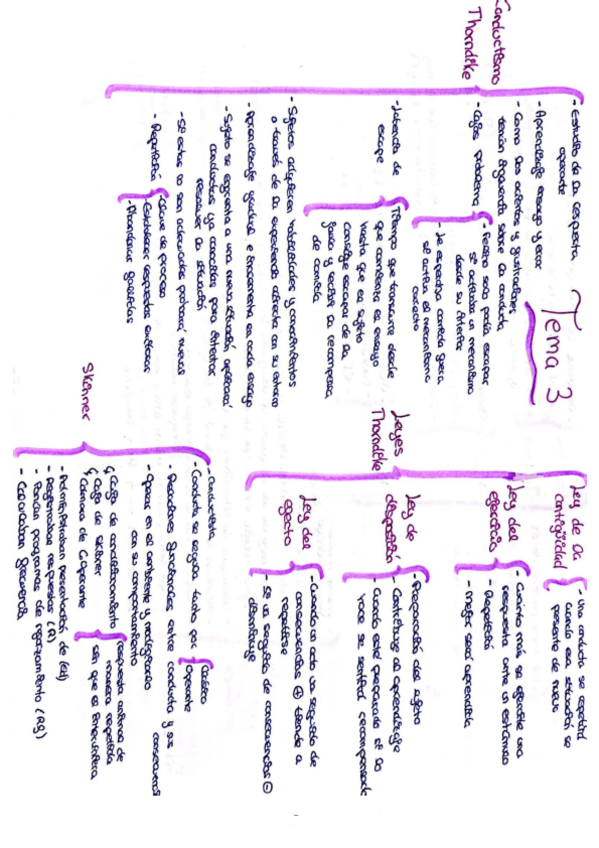 Tema 3
Conductismo
Thorndike
- Estudio de la respuesta
operante
- Aprendizaje ensayo y error
- Como los aciertos y frustraciones
tenían importancia sobre la conducta
- Cajas problema
- Felino solo podía escapar
si activaba un mecanismo
desde su interior
- Le esperaba comida fuera
si activa el mecanismo
correcto
- Latencia de
escape
Tiempo que transcurre desde
que comienza el ensayo
hasta que el sujeto
consigue escapar de la
jaula y recibir la recompensa
de comida
- Sujetos adquieren habilidades y conocimientos
a través de su experiencia directa con su entorno
- Aprendizaje gradual e incrementa en cada ensayo
- Sujeto se enfrenta a una nueva situación aplicará
conductas ya conocidas para intentar
resolver la situación
- Si estas no son adecuadas probará nuevas
- Repetición
- Clave de proceso
- Establecer respuestas exitosas
- Abandonar fallidas
Leyes
Thorndike
Ley de la
contigüidad
- Una conducta se repetirá
cuando esa situación se
presente de nuevo
Ley del
ejercicio
- Cuánto más se ejercite una
respuesta ante un estímulo
- Repetirá
- Mejor será aprendida
Ley de
disposición
- Preparación del sujeto
- Contribuye al aprendizaje
- Cuando esté preparado si lo
hace se sentirá recompensado
Ley del
efecto
- Cuando un acto va seguido de
consecuencias ⊕ tiende a
repetirse
- Si va seguido de consecuencias ⊖
disminuye
Skinner
- Conductista
- Conducta se regula tanto por
Clásico
Operante
- Relaciones funcionales entre conducta y sus
consecuencias
- Operar en el ambiente y modificarlo
con su comportamiento
Caja de condicionamiento
Caja de Skinner
Cámara de C. Operante
respuesta activa de
manera repetida
sin que se interrumpiera
- Administraban presentación de (Ed)
- Registraba respuestas (R)
- Ponían programas de reforzamiento (Rg)
- Calculaban frecuencia